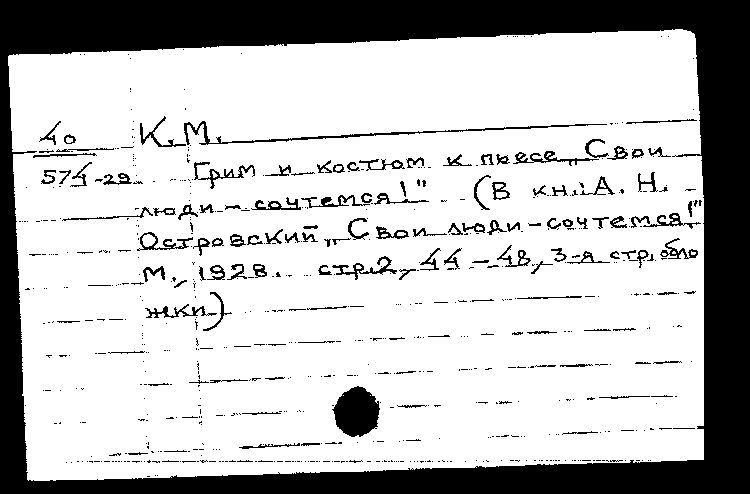 40 К. М.
574-29 Грим и костюм к пьесе „Свои
люди - сочтемся!" (В кн.: А. Н.
Островский „Свои люди - сочтемся!"
М., 1928. стр. 2, 44 - 48, 3-я стр. обло
жки)